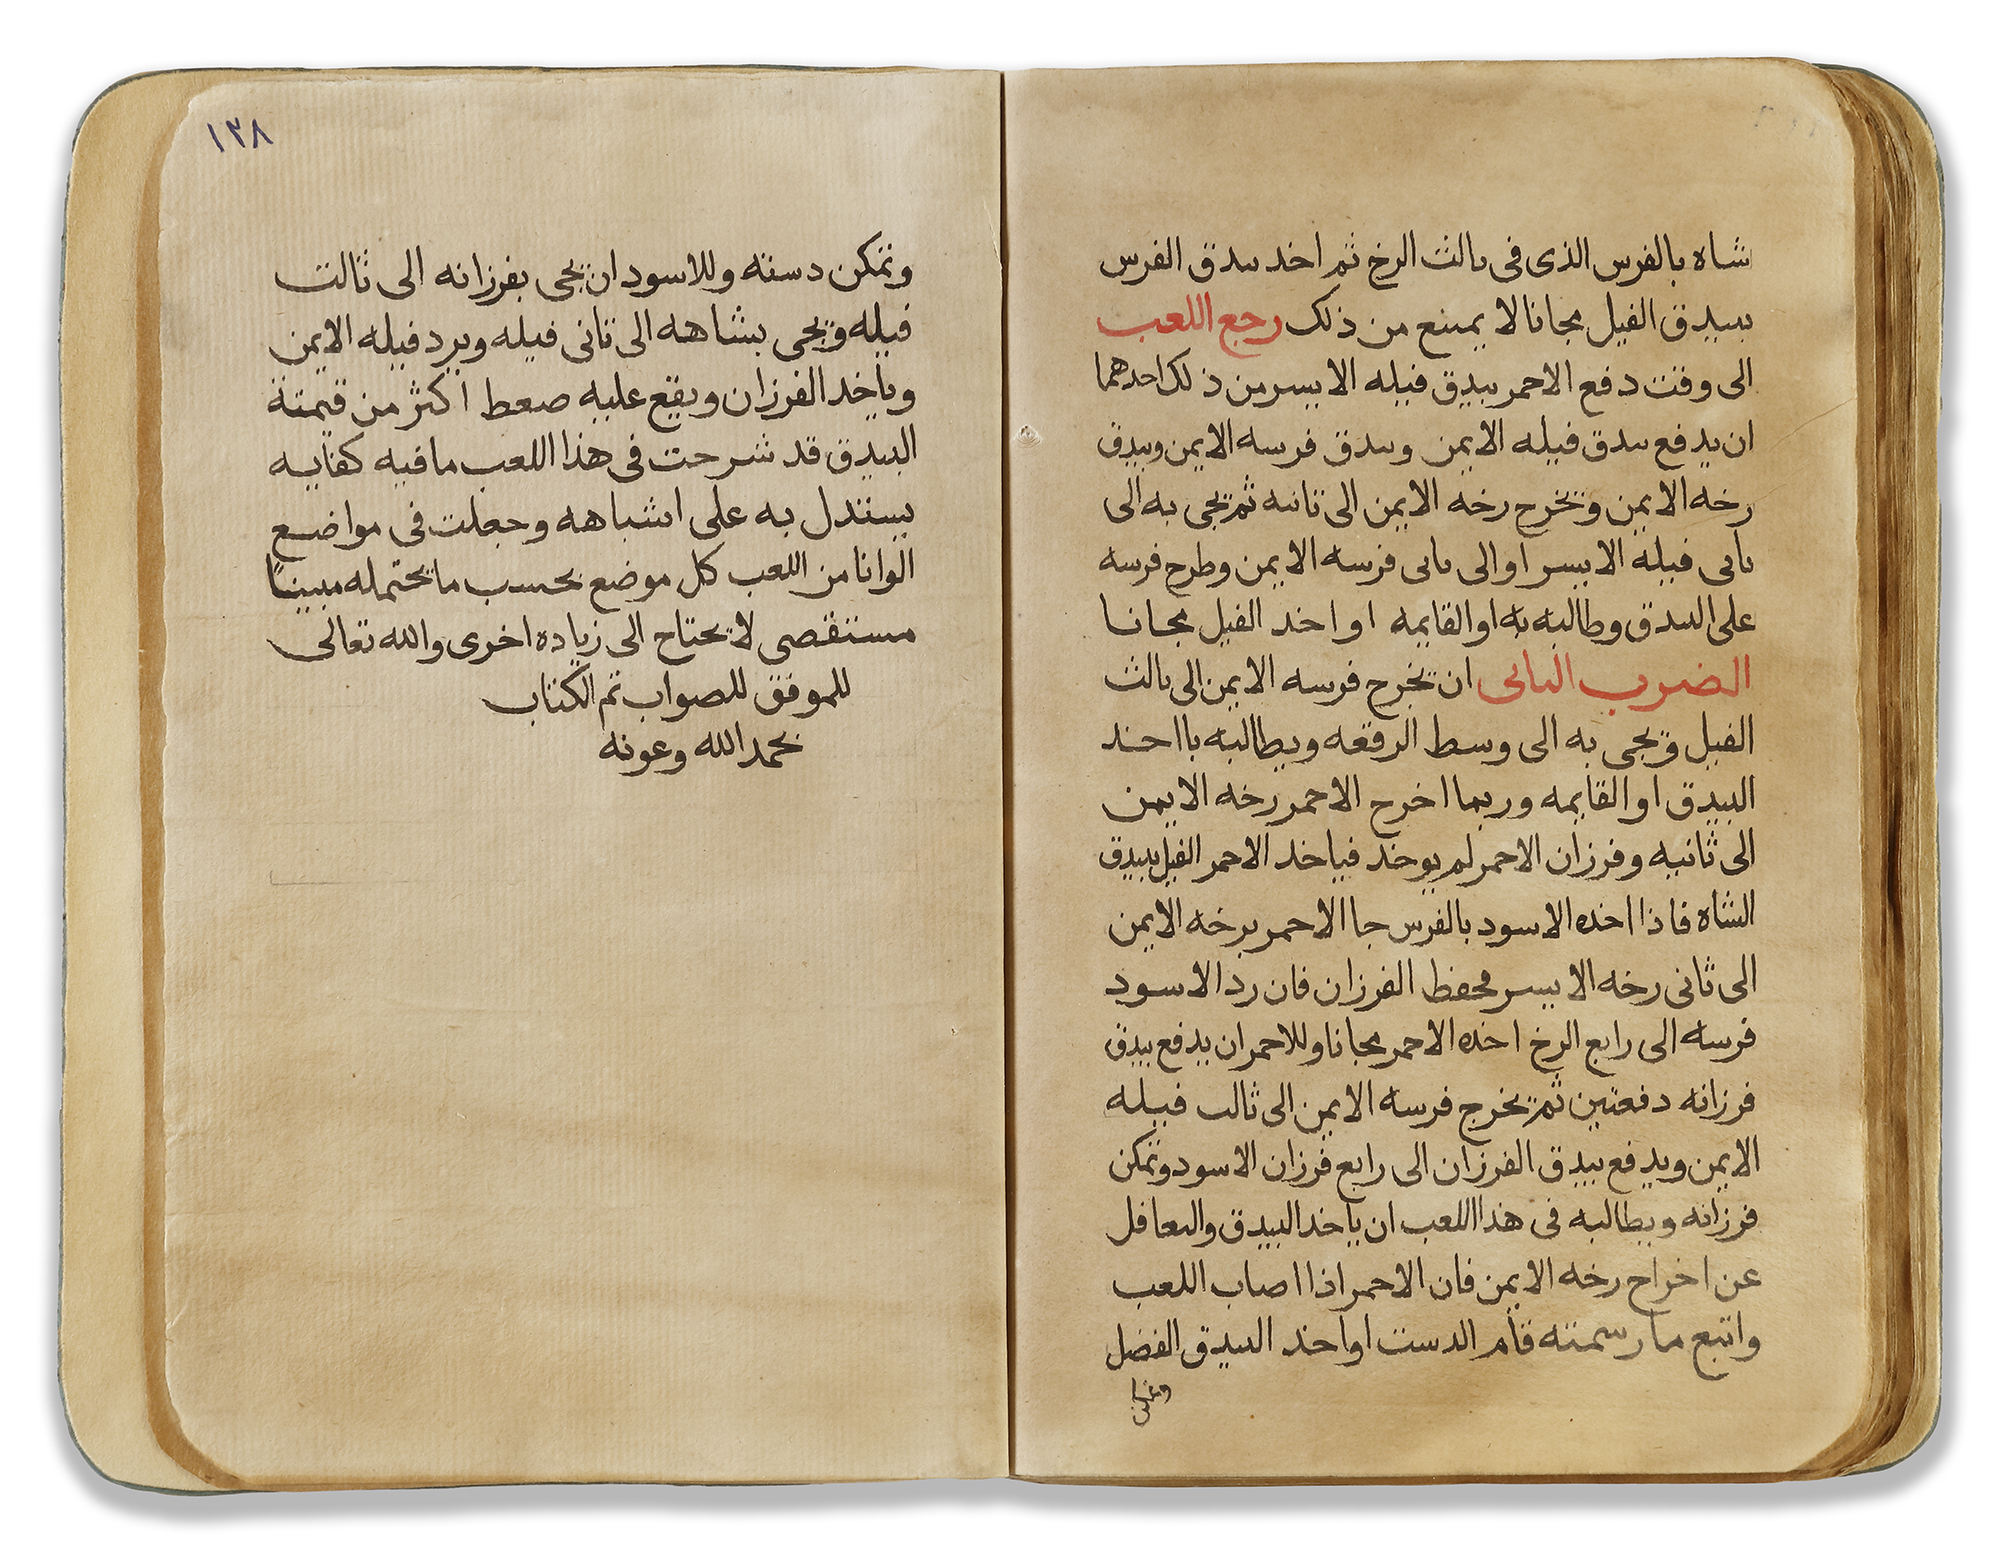 شاه بالفرس الذى فى ىالث الرخ ثم اخد ىىدق الفرس
ىبيدق الفيل مجانا لا يمىنع من ذلك رجع اللعب
الى وقت دفع الاحمر بيدق فيله الايسر من ذلك احدهما
ان يدفع بىدق فيله الايمن وبىدق فرسه الايمن وبيدق
رخه الايمن ويخرج رخه الايمن الى ثانيه ثم يجى به الى
ىانى فيله الايسر او الى ىانى فرسه الايمن وطرح فرسه
على البىدق وطالبه به او القايمه او اخد الفيل مجانا
الضرب الثانى ان يخرج فرسه الايمن الى ىالث
الفيل ويجى به الى وسط الرقعه ويطالبه بااخد
البيدق او القايمه وربما اخرج الاحمر رخه الايمن
الى ثانيه وفرزان الاحمر لم يوخد فياخد الاحمر الفيل ببيدق
الشاه فاذا اخده الاسود بالفرس جا الاحمر برخه الايمن
الى ثانى رخه الايسر فحفظ الفرزان فان رد الاسود
فرسه الى رابع الرخ اخده الاحمر مجانا وللاحمر ان يدفع بيدق
فرزانه دفعتين ثم يخرج فرسه الايمن الى ثالث فيله
الايمن ويدفع بيدق الفرزان الى رابع فرزان الاسود وتمكن
فرزانه ويطالبه فى هذا اللعب ان ياخد البيدق والىعافل
عن اخراج رخه الايمن فان الاحمر اذا اصاب اللعب
واتبع ما رسمته قام الدست او اخد البيدق الفضل
١٣٨
وتمكن دسته وللاسود ان يجى بفرزانه الى ثالث
فيله ويجى بشاهه الى ثانى فيله ويرد فيله الايمن
وياخد الفرزان ويقع عليه ضعط اكثر من قيمتة
البيدق قد شرحت فى هذا اللعب مافيه كفايه
يستدل به على اشباهه وجعلت فى مواضع
الوانا من اللعب كل موضع بحسب ما يحتمله مبينًا
مستقصى لا يحتاج الى زياده اخرى والله تعالى
للموفق للصواب تم الكتاب
بحمد الله وعونه